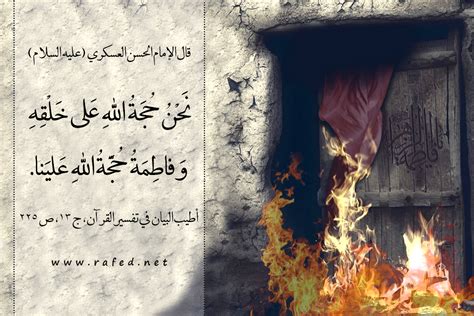 قال الإمام الحسن العسكري (عليه السلام)
نَحْنُ حُجَّةُ اللهِ عَلى خَلْقِهِ
وَ فاطِمَةُ حُجَّةُ اللهِ عَلَينا.
أطيب البيان في تفسير القرآن، ج ١٣، ص ٢٢٥
www.rafed.net